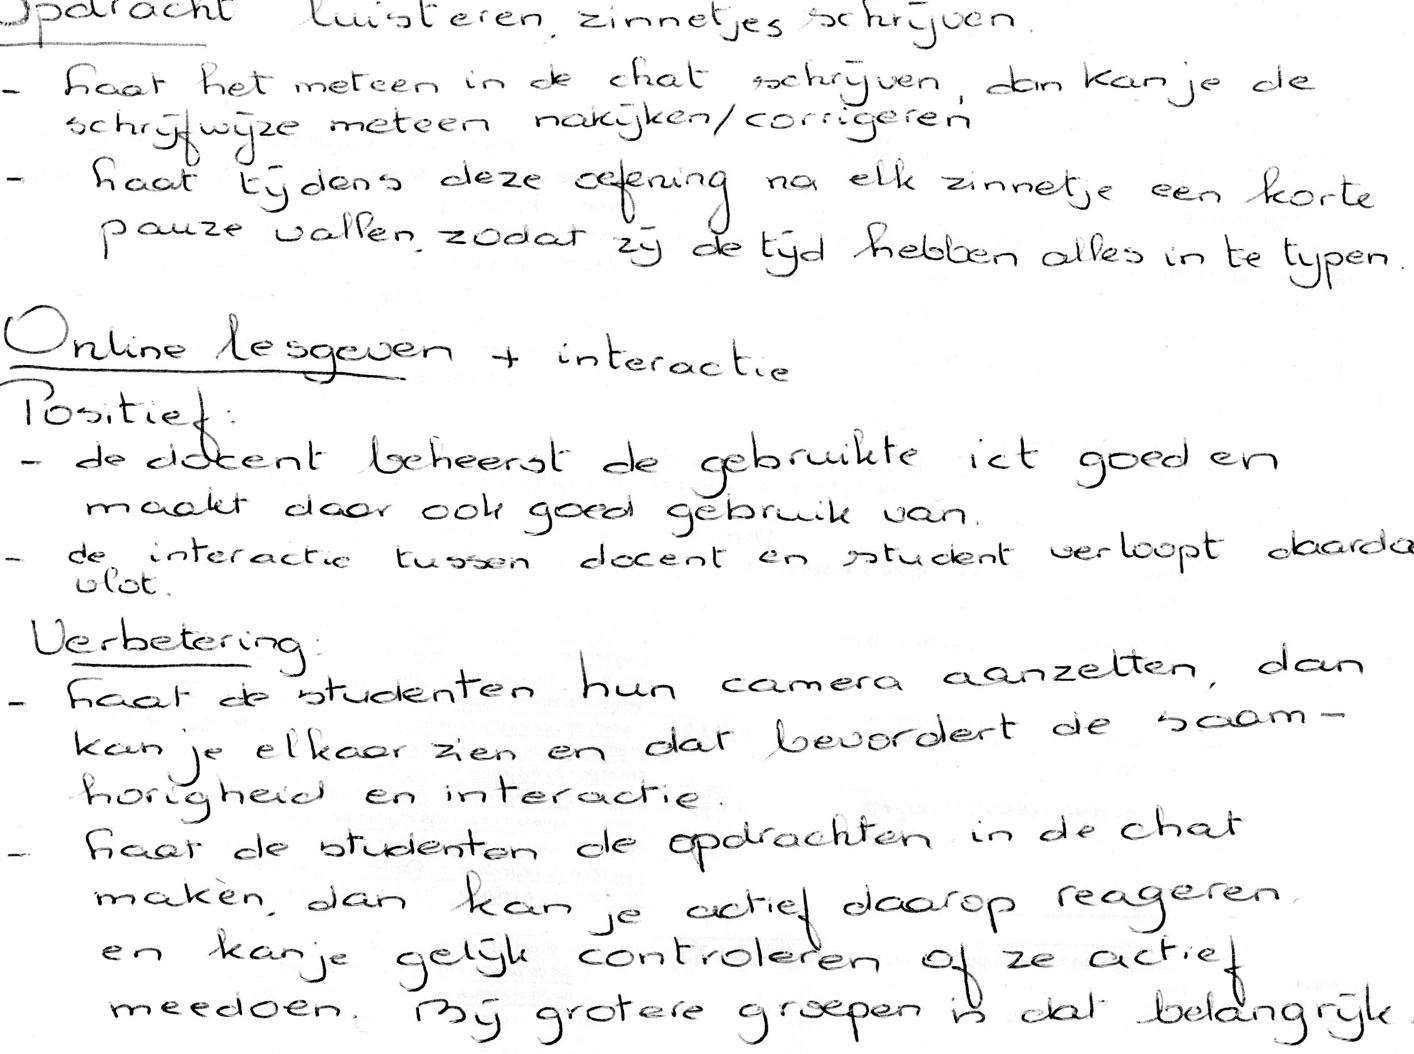 Opdracht luisteren, zinnetjes schrijven.
- Laat het meteen in de chat schrijven, dan kan je de
schrijfwijze meteen nakijken/corrigeren
- Laat tijdens deze oefening na elk zinnetje een korte
pauze vallen, zodat zij de tijd hebben alles in te typen.
Online lesgeven + interactie
Positief:
- de docent beheerst de gebruikte ict goed en
maakt daar ook goed gebruik van.
- de interactie tussen docent en student verloopt daarda
vlot.
Verbetering:
- Laat de studenten hun camera aanzetten, dan
kan je elkaar zien en dat bevordert de saam-
horigheid en interactie.
- Laat de studenten de opdrachten in de chat
maken, dan kan je actief daarop reageren.
en kan je gelijk controleren of ze actief
meedoen. Bij grotere groepen is dat belangrijk.